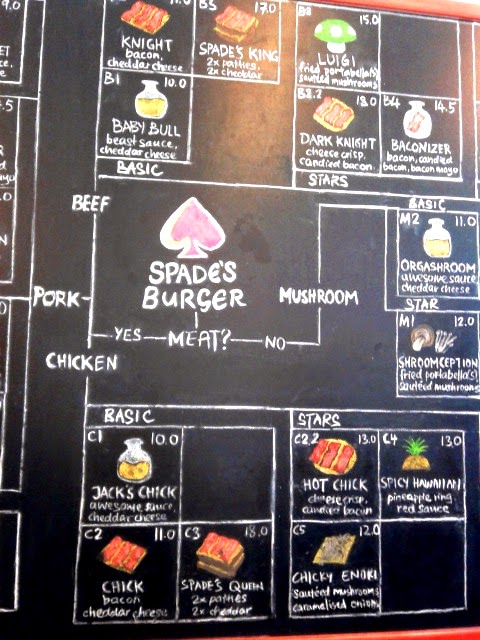 9.0
KNIGHT
bacon,
cheddar cheese
B3 17.0
SPADE'S KING
2x patties,
2x cheddar
15.0
LUIGI
fried portabella(s)
sautéed mushrooms
B1 10.0
BABY BULL
beast sauce,
cheddar cheese
B2.2 13.0
DARK KNIGHT
cheese crisp,
candied bacon
B4 14.5
BACONIZER
bacon, candied
bacon, bacon mayo
BASIC
STARS
BEEF
PORK
CHICKEN
SPADE'S
BURGER
YES
MEAT?
NO
MUSHROOM
BASIC
M2 11.0
ORGASHROOM
awesome sauce
cheddar cheese
STAR
M1 12.0
SHROOMCEPTION
fried portabella(s)
sautéed mushrooms
BASIC
C1 10.0
JACK'S CHICK
awesome sauce,
cheddar cheese
C2 11.0
CHICK
bacon
cheddar cheese
C3 18.0
SPADE'S QUEEN
2x patties
2x cheddar
STARS
C2.2 13.0
HOT CHICK
cheese crisp,
candied bacon
C4 13.0
SPICY HAWAIIAN
pineapple ring,
red sauce
C5 12.0
CHICKY ENOKI
sautéed mushrooms
caramelised onions